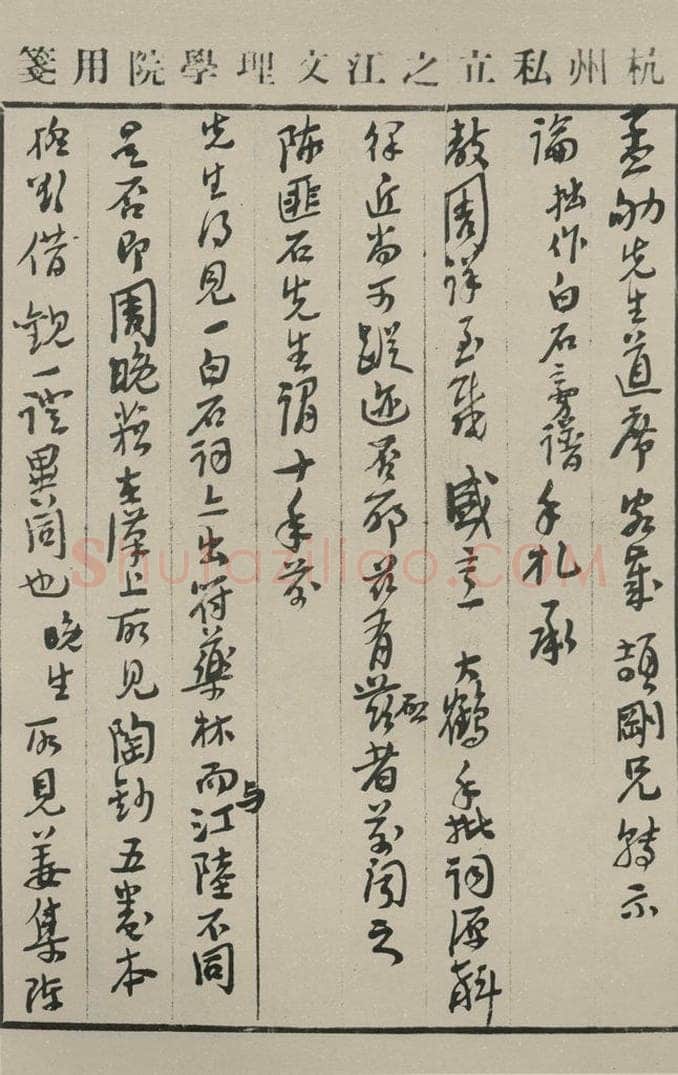 杭州私立之江文理學院用箋
孟劬先生道席 客歲 頡剛兄轉示
論拙作白石旁譜手札承
教周詳至 感 大鶴手批詞源斠
律近尚可蹤迹否耶 有啟者前聞之
陳匪石先生謂十年前
先生得見一白石詞上出符藥林而與江陸不同
是否即周晚菘在漢上所見陶鈔五卷本
擬借觀一證異同也 晚生所見姜集除
Shufaziliao.COM